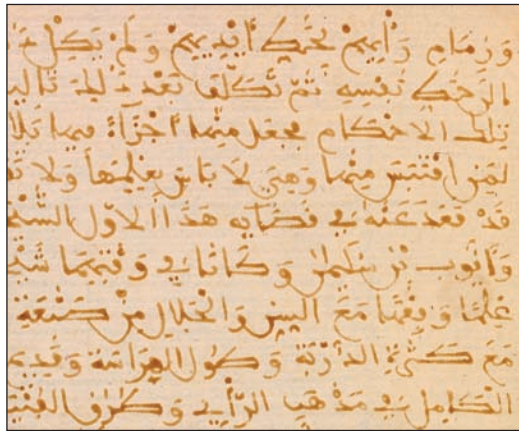 وزمام رأيهم تحت أيديهم ولم يكل
الرجل نفسه ثم تكلف بعد ذلك
تلك الاحكام فجعل منها اجزاء فيها
لمن اقتبس منها وهي لا باس بعلمها ولا
قد قعد عنه في قضايه هذا الاول
وايوب بن سليمن وكانا في وقتهما
علما وفقها مع السن والجلال من صنعة
مع كثرة الدربة وطول الدراسة
الكامل في مذهب الرأي وطرف